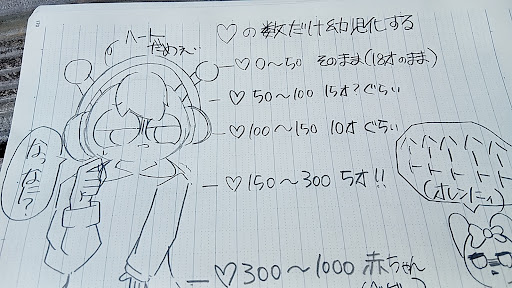 ハート
だわぇ~
♡の数だけ幼児化する
♡0~50 そのまま(18才のまま)
♡50~100 15才?ぐらい
♡100~150 10才ぐらい
♡150~300 5才!!
♡300~1000 赤ちゃん
なっなに?
ハート ハート ハート ハート ハート